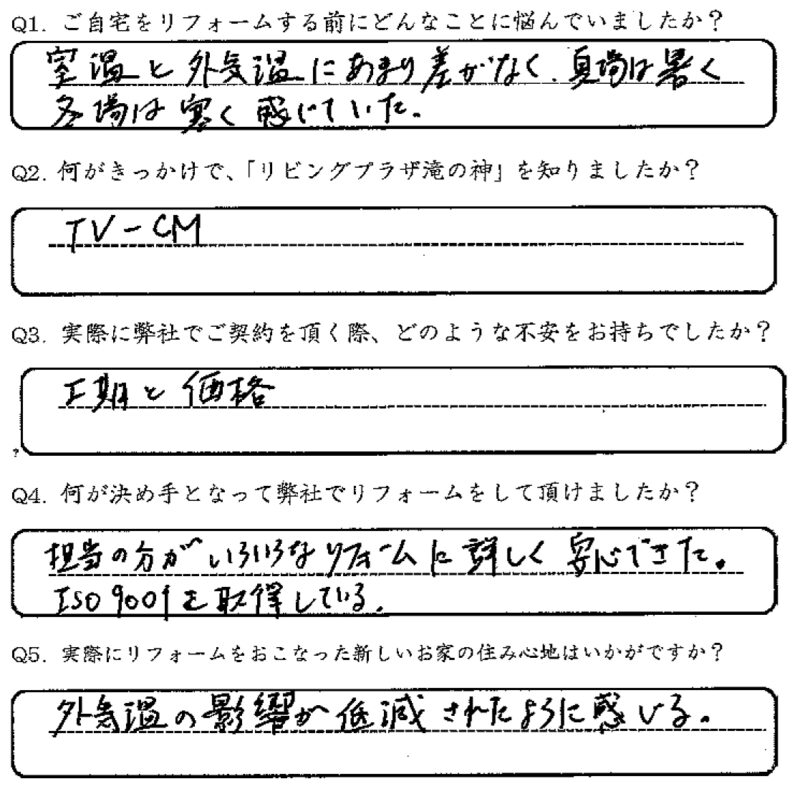 Q1. ご自宅をリフォームする前にどんなことに悩んでいましたか?
室温と外気温にあまり差がなく、夏場は暑く
冬場は寒く感じていた。
Q2. 何がきっかけで、「リビングプラザ滝の神」を知りましたか?
TV-CM
Q3. 実際に弊社でご契約を頂く際、どのような不安をお持ちでしたか?
工期と価格
Q4. 何が決め手となって弊社でリフォームをして頂けましたか?
担当の方がいろいろなリフォームに詳しく安心できた。
ISO9001を取得している。
Q5. 実際にリフォームをおこなった新しいお家の住み心地はいかがですか?
外気温の影響が低減されたように感じる。